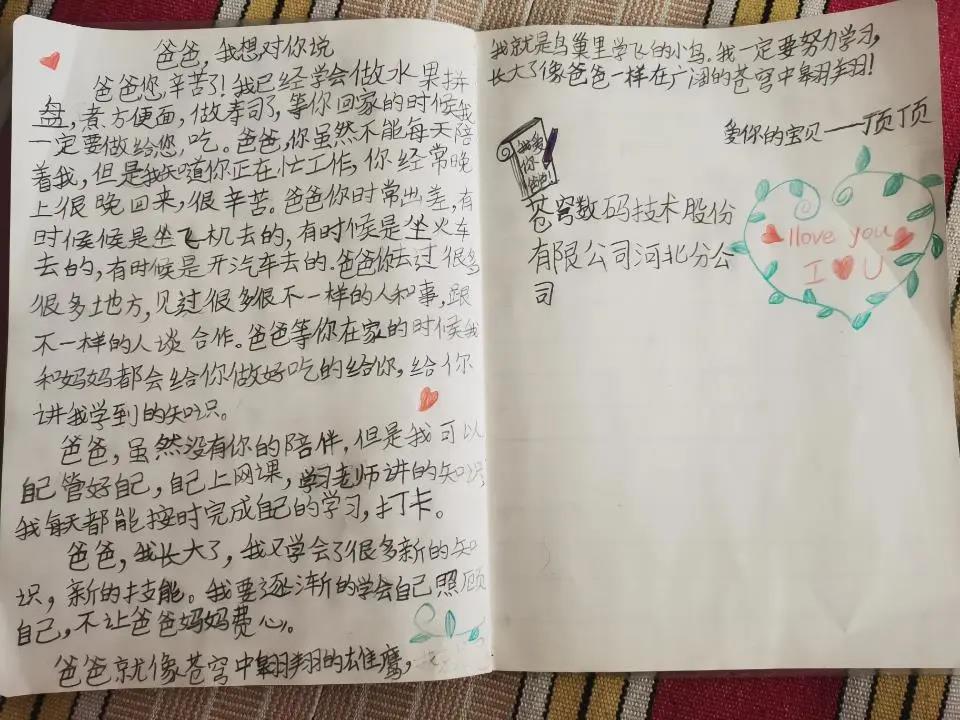 爸爸，我想对你说
爸爸您辛苦了！我已经学会做水果拼
盘，煮方便面，做寿司了，等你回家的时候我
一定要做给您吃。爸爸，你虽然不能每天陪
着我，但是我知道你正在忙工作，你经常晚
上很晚回来，很辛苦。爸爸你时常出差，有
时候候是坐飞机去的，有时候是坐火车
去的，有时候是开汽车去的。爸爸你去过很多
很多地方，见过很多很不一样的人和事，跟
不一样的人谈合作。爸爸等你在家的时候我
和妈妈都会给你做好吃的给你，给你
讲我学到的知识。
爸爸，虽然没有你的陪伴，但是我可以
自己管好自己，自己上网课，学习老师讲的知识
我每天都能按时完成自己的学习，打卡。
爸爸，我长大了，我又学会了很多新的知
识，新的技能。我要逐渐的学会自己照顾
自己，不让爸爸妈妈费心。
爸爸就像苍穹中翱翔的雄鹰，
我就是鸟巢里学飞的小鸟。我一定要努力学习，
长大了像爸爸一样在广阔的苍穹中翱翔！
爱你的宝贝——顶顶
我爱
你
爸爸！
苍穹数码技术股份
有限公司河北分公
司
I love you
I U